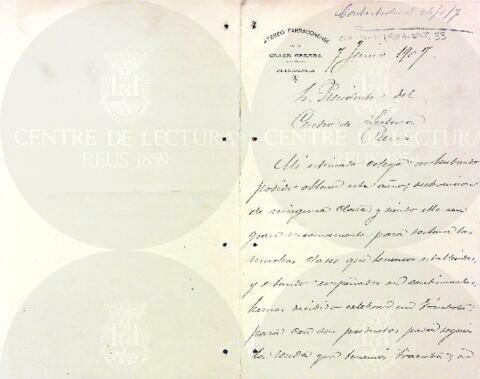 Contestada el 26/6/7
ATENEO TARRACONENSE
DE LA
CLASE OBRERA
PRESIDENCIA
7 Junio 1907.
Sr. Presidente del
Centro de Lectura
Reus
Mi estimado colega: no habiendo
podido obtener este año, subvencion
de ninguna clase, y siendo ello un
gran para sostener las
muchas clases que tenemos establecidas,
y estando empeñados en continuarlas,
hemos decidido celebrar una Tómbola
para con sus productos poder seguir
la senda que tenemos trazada; en
CENTRE DE LECTURA
REUS 1859
CENTRE DE LECTURA
REUS 1859